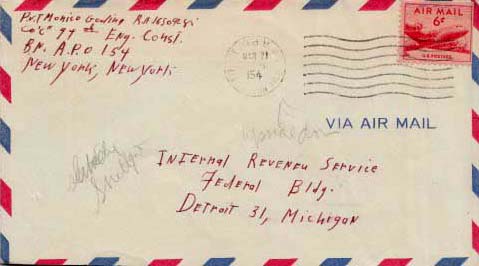 Pvt Monico Gowing RA
Co "C" 77 Eng. Const.
BN. A.P.O 154
New York, New York
AIR MAIL
6¢
U.S. POSTAGE
154
VIA AIR MAIL
Internal Reveneu Service
Federal Bldg.
Detroit 31, Michigan